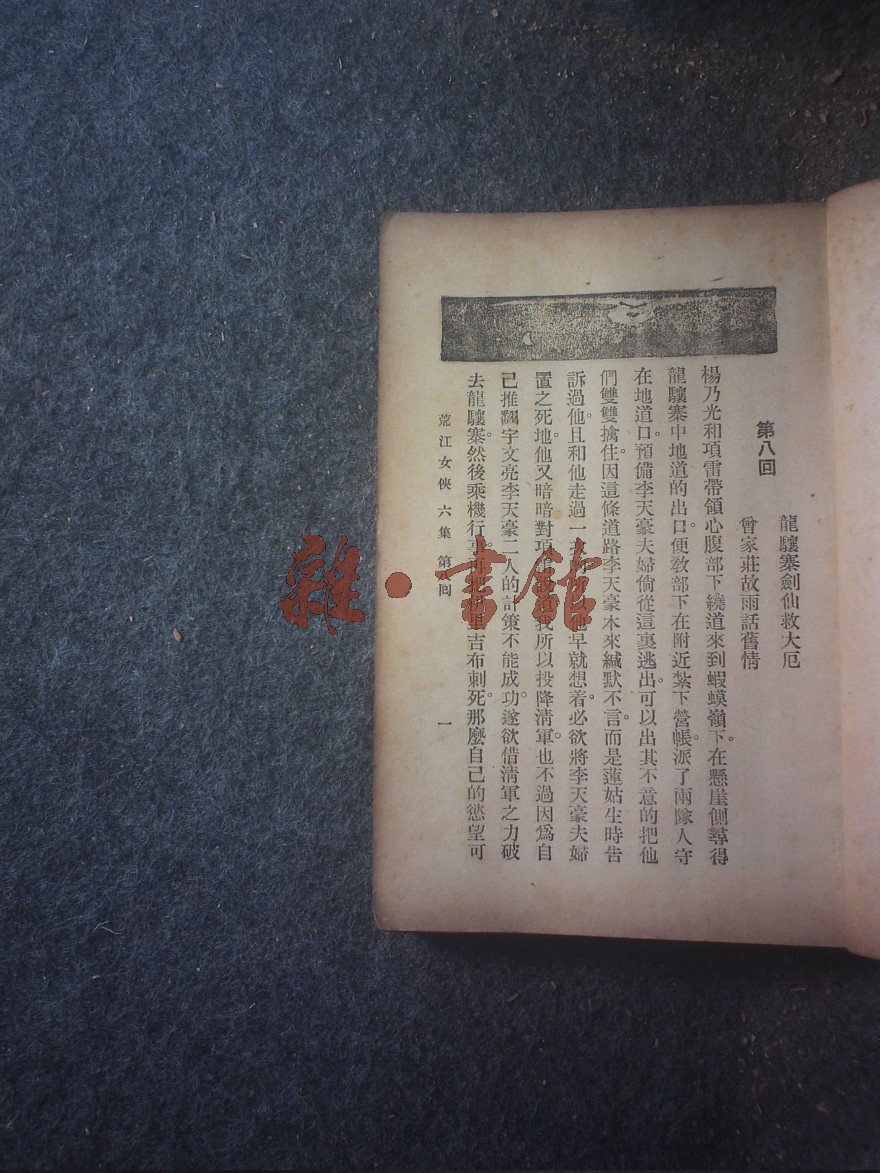 第八回
龍驤寨劍仙救大厄
曾家莊故雨話舊情
楊乃光和項雷帶領心腹部下繞道來到蝦蟆嶺下。在懸崖側尋得
龍驤寨中地道的出口。便教部下在附近紮下營帳。派了兩隊人守
在地道口。預備李天豪夫婦倘從這裏逃出。可以出其不意的把他
們雙雙擒住。因這條道路李天豪本來緘默不言。而是蓮姑生時告
訴過他。且和他走過一次早就想着。必欲將李天豪夫婦
置之死地。他又暗暗對項我所以投降清軍。也不過因爲自
己推翻宇文亮李天豪二人的計策不能成功。遂欲借清軍之力破
去龍驤寨。然後乘機行事。再把吉布刺死。那麼自己的慾望可
荒江女俠 六集 第八回
一
雜·書館